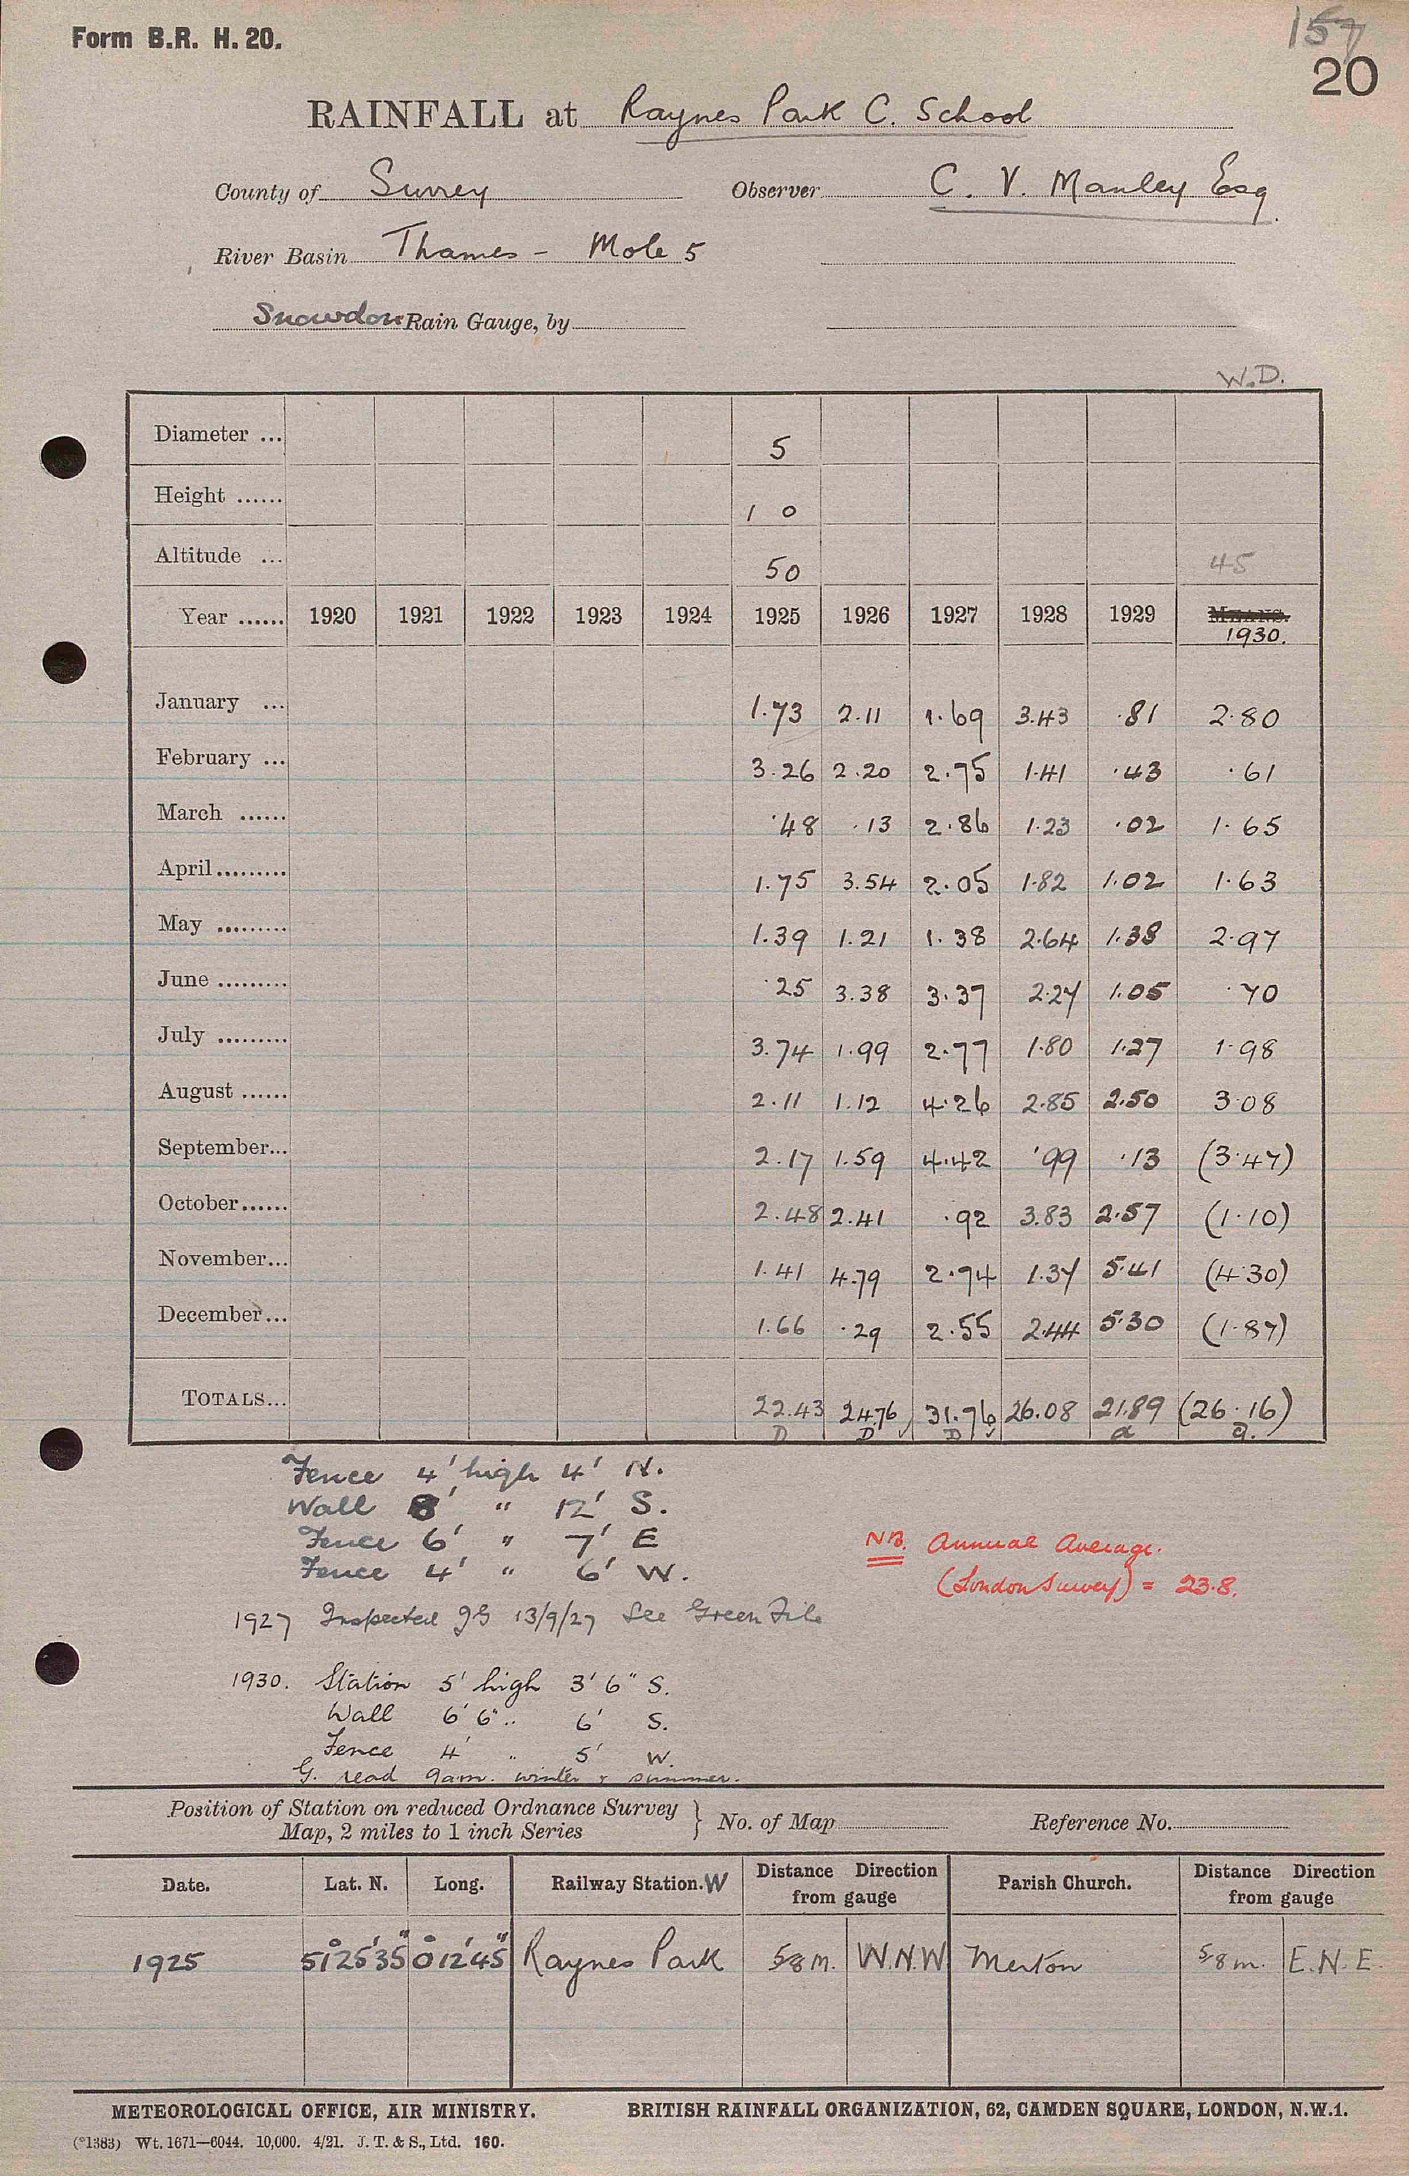 Form B.R. H. 20.
157
20
RAINFALL at Raynes Park C. School
County of Surrey Observer C. V. Manley Esq.
River Basin Thames - Mole 5
Snowdon Rain Gauge, by
W.D.
Diameter ... 5
Height ...... 1 0
Altitude ... 50 45
Year ...... 1920 1921 1922 1923 1924 1925 1926 1927 1928 1929 MEANS. 1930.
January ... 1.73 2.11 1.69 3.43 .81 2.80
February ... 3.26 2.20 2.75 1.41 .43 .61
March ...... .48 .13 2.86 1.23 .02 1.65
April ......... 1.75 3.54 2.05 1.82 1.02 1.63
May ......... 1.39 1.21 1.38 2.64 1.38 2.97
June ......... .25 3.38 3.37 2.27 1.05 .70
July ......... 3.74 1.99 2.77 1.80 1.27 1.98
August ...... 2.11 1.12 4.26 2.85 2.50 3.08
September... 2.17 1.59 4.42 .99 .13 (3.47)
October...... 2.48 2.41 .92 3.83 2.57 (1.10)
November... 1.41 4.79 2.94 1.37 5.41 (4.30)
December... 1.66 .29 2.55 2.44 5.30 (1.87)
TOTALS... 22.43 24.76 31.76 26.08 21.89 (26.16)
D D D a a.
Fence 4' high 4' N.
Wall 8' " 12' S.
Fence 6' " 7' E
Fence 4' " 6' W.
NB. Annual Average.
(London Survey) = 23.8.
1927 Inspected JG 13/9/27 See Green File
1930. Station 5' high 3' 6" S.
Wall 6' 6" " 6' S.
Fence 4' " 5' W.
G. read 9am. winter & summer.
Position of Station on reduced Ordnance Survey Map, 2 miles to 1 inch Series } No. of Map Reference No.
Date. Lat. N. Long. Railway Station. W Distance Direction from gauge Parish Church. Distance Direction from gauge
1925 51° 25' 35" 0° 12' 45" Raynes Park 5/8 m. W.N.W. Merton 5/8 m. E.N.E.
METEOROLOGICAL OFFICE, AIR MINISTRY. BRITISH RAINFALL ORGANIZATION, 62, CAMDEN SQUARE, LONDON, N.W.1.
(*1383) Wt. 1671—6044. 10,000. 4/21. J. T. & S., Ltd. 160.